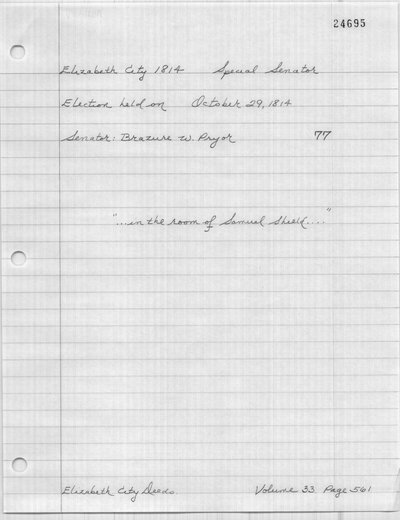 24695
Elizabeth City 1814 Special Senator
Election held on October 29, 1814
Senator: Brazure W. Pryor 77
"...in the room of Samuel Shield...."
Elizabeth City Deeds Volume 33 Page 561